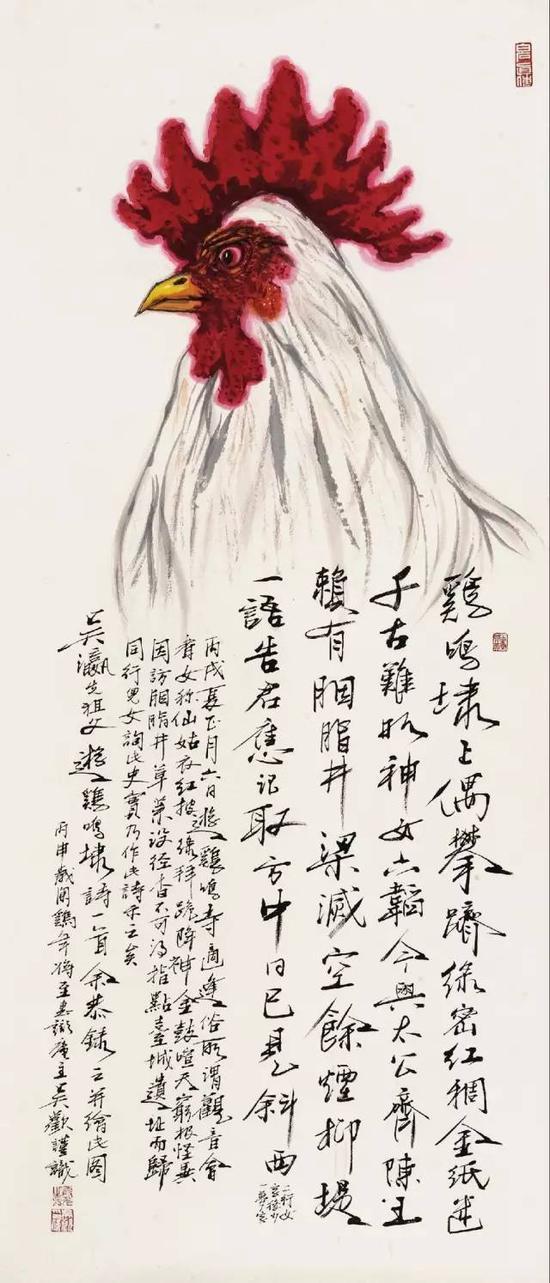 鷄鳴埭上偶攀躋綠密紅稠金紙迷
千古難明神女六韜今與太公齊陳主
賴有胭脂井梁滅空餘煙柳堤
一語告君應記取方中日已見斜西
二行女
丙戌夏正月六日遊鷄鳴寺適逢俗所謂觀音會
有女称仙姑衣紅披綠拜跪降神金鼓喧天窮極怪異
因訪胭脂井草萊没徑杳不可得指點臺城遺址而歸
同行兒女詢此史實乃作此詩示之矣
吳瀛先祖父遊鷄鳴埭詩一首余恭錄之并繪此圖
丙申歲閏鷄年將至吳歡謹識